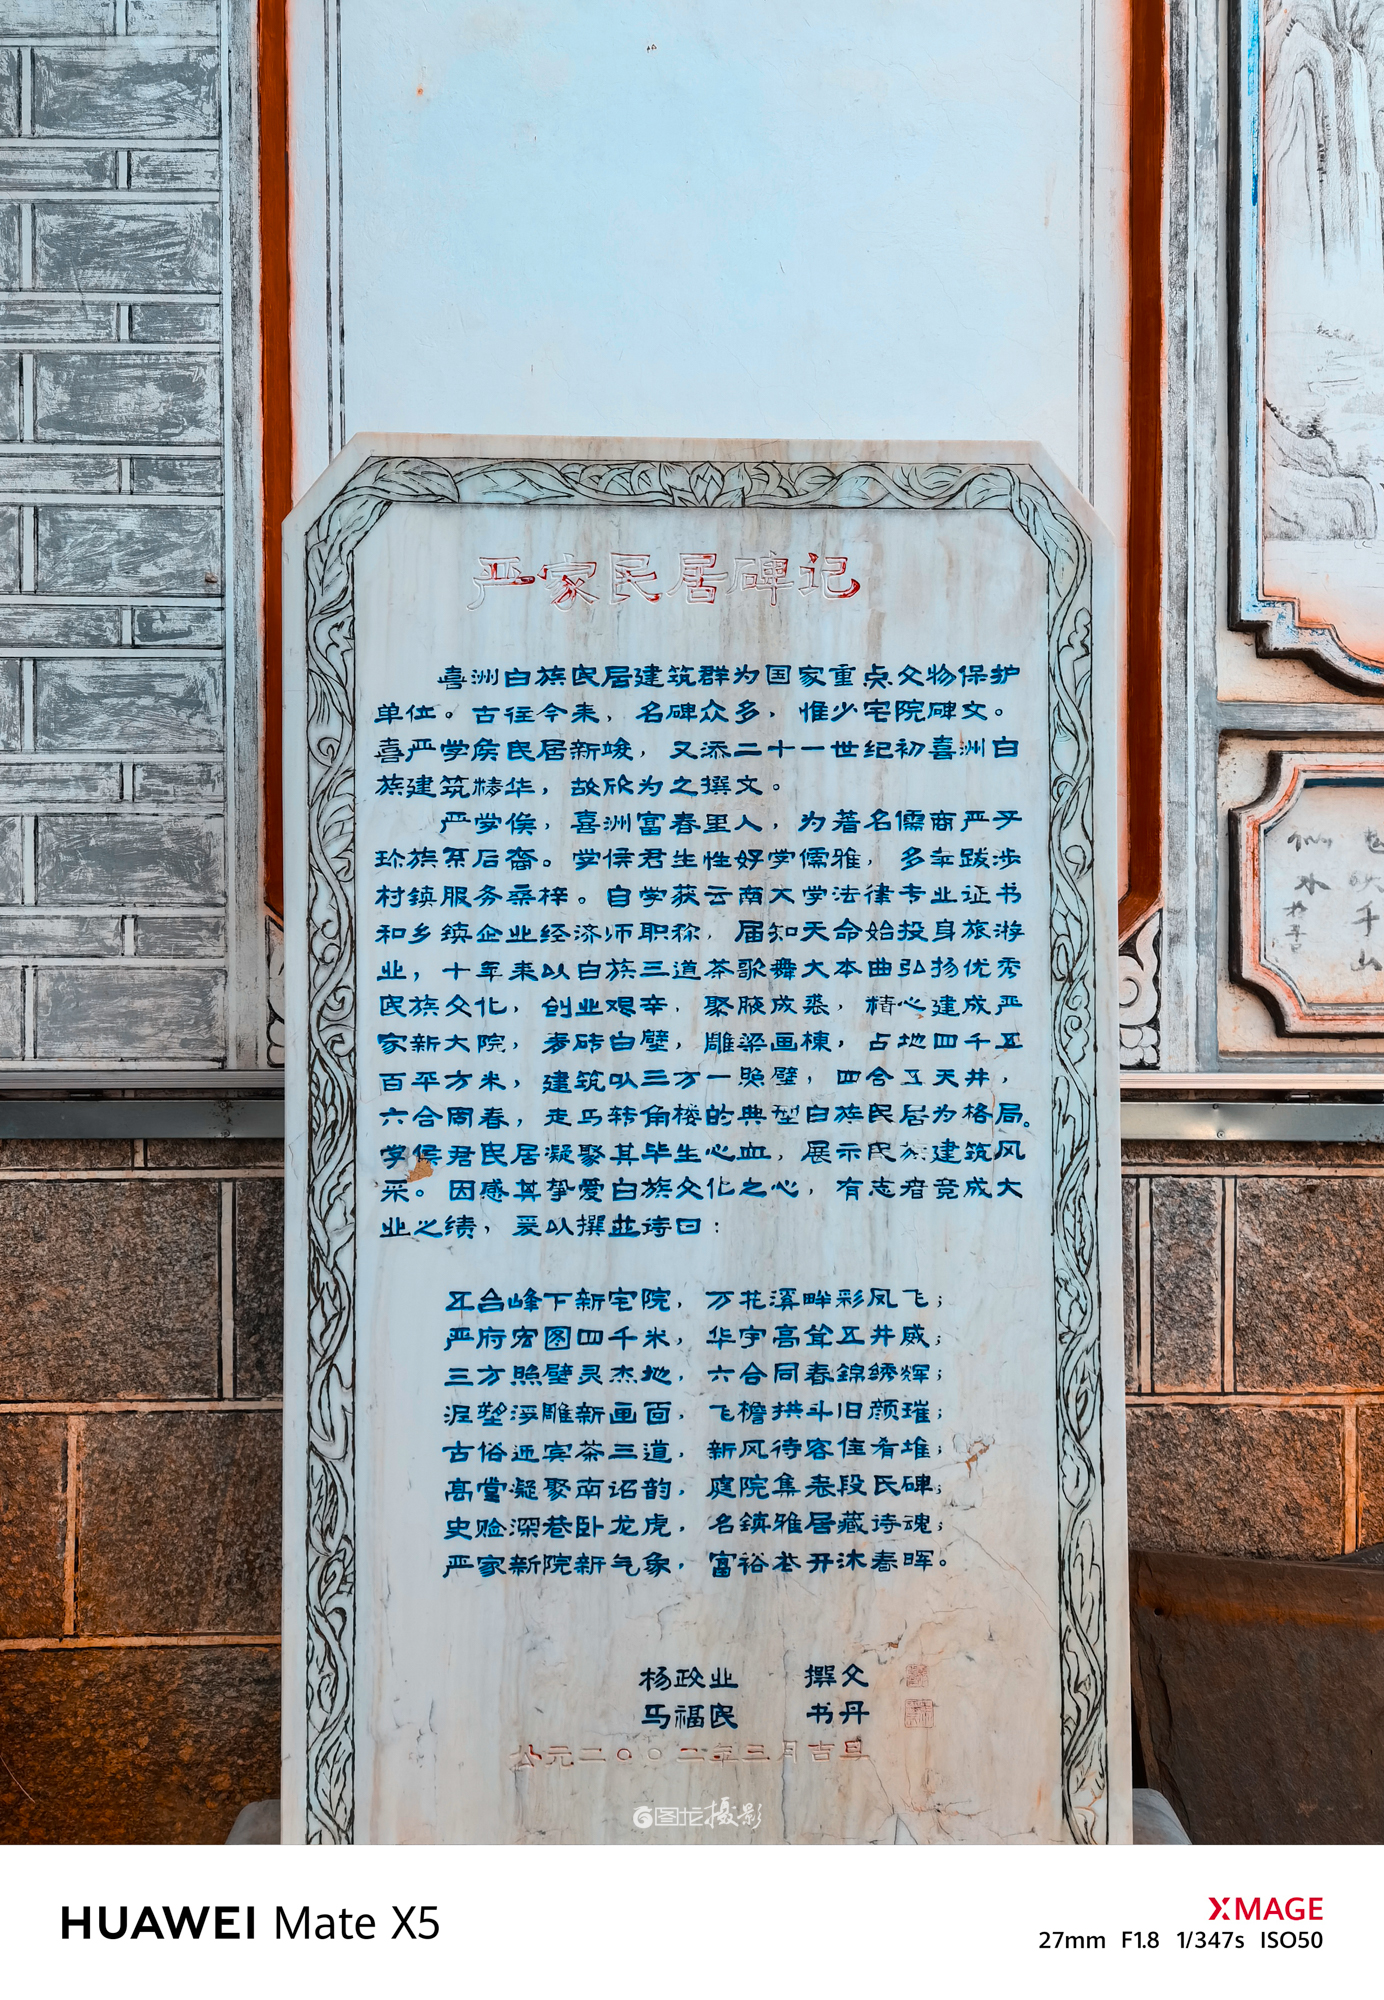 严家民居碑记
喜洲白族民居建筑群为国家重点文物保护
单位。古往今来，名碑众多，惟少宅院碑文。
喜严学侯民居新竣，又添二十一世纪初喜洲白
族建筑精华，故欣为之撰文。
严学侯，喜洲富春里人，为著名儒商严子
珍族系后裔。学侯君生性好学儒雅，多年跋涉
村镇服务桑梓。自学获云南大学法律专业证书
和乡镇企业经济师职称，届知天命始投身旅游
业，十年来以白族三道茶歌舞大本曲弘扬优秀
民族文化，创业艰辛，聚腋成裘，精心建成严
家新大院，青砖白壁，雕梁画栋，占地四千五
百平方米，建筑以三方一照壁，四合五天井，
六合同春，走马转角楼的典型白族民居为格局。
学侯君民居凝聚其毕生心血，展示民族建筑风
采。因感其挚爱白族文化之心，有志者竟成大
业之绩，爰以撰并诗曰：
五台峰下新宅院，万花溪畔彩凤飞；
严府宏图四千米，华宇高耸五井威；
三方照壁灵杰地，六合同春錦绣辉；
泥塑浮雕新画面，飞檐拱斗旧颜璀；
古俗迎宾茶三道，新风待客佳肴堆；
高堂凝聚南诏韵，庭院集老段氏碑；
史赊深巷卧龙虎，名鎮雅居藏诗魂；
严家新院新气象，富裕花开沐春晖。
杨政业 撰文
马福民 书丹
公元二〇〇二年三月吉旦
图龙摄影
千山
水
HUAWEI Mate X5
XMAGE
27mm F1.8 1/347s ISO50